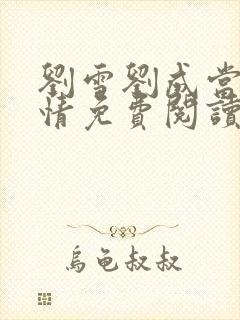 劉雪劉成當
情免費閱讀
烏龜叔叔